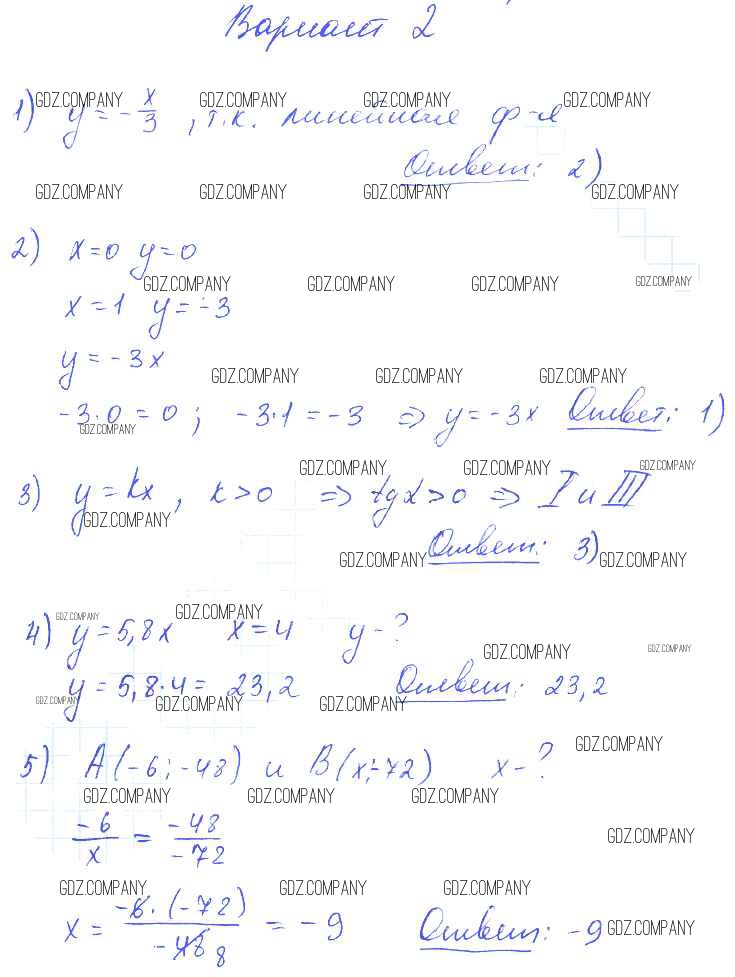 Вариант 2
1) y = -x/3, т.к. линейная ф-я
GDZ.COMPANY GDZ.COMPANY GDZ.COMPANY GDZ.COMPANY
Ответ: 2)
GDZ.COMPANY GDZ.COMPANY GDZ.COMPANY GDZ.COMPANY
2) x=0 y=0
GDZ.COMPANY GDZ.COMPANY GDZ.COMPANY GDZ.COMPANY
x=1 y=-3
y=-3x
GDZ.COMPANY GDZ.COMPANY GDZ.COMPANY
-3·0=0; -3·1=-3 => y=-3x Ответ: 1)
GDZ.COMPANY
GDZ.COMPANY GDZ.COMPANY GDZ.COMPANY
3) y=kx, k>0 => tgα>0 => I и III
GDZ.COMPANY
Ответ: 3)
GDZ.COMPANY GDZ.COMPANY
GDZ.COMPANY GDZ.COMPANY
4) y=5,8x x=4 y-?
GDZ.COMPANY GDZ.COMPANY
y=5,8·4= 23,2 Ответ: 23,2
GDZ.COMPANY GDZ.COMPANY GDZ.COMPANY
GDZ.COMPANY
5) A(-6;-48) и B(x;-72) x-?
GDZ.COMPANY GDZ.COMPANY GDZ.COMPANY
-6/x = -48/-72
GDZ.COMPANY
GDZ.COMPANY GDZ.COMPANY GDZ.COMPANY
x = -6·(-72)/-48 8 = -9 Ответ: -9
GDZ.COMPANY